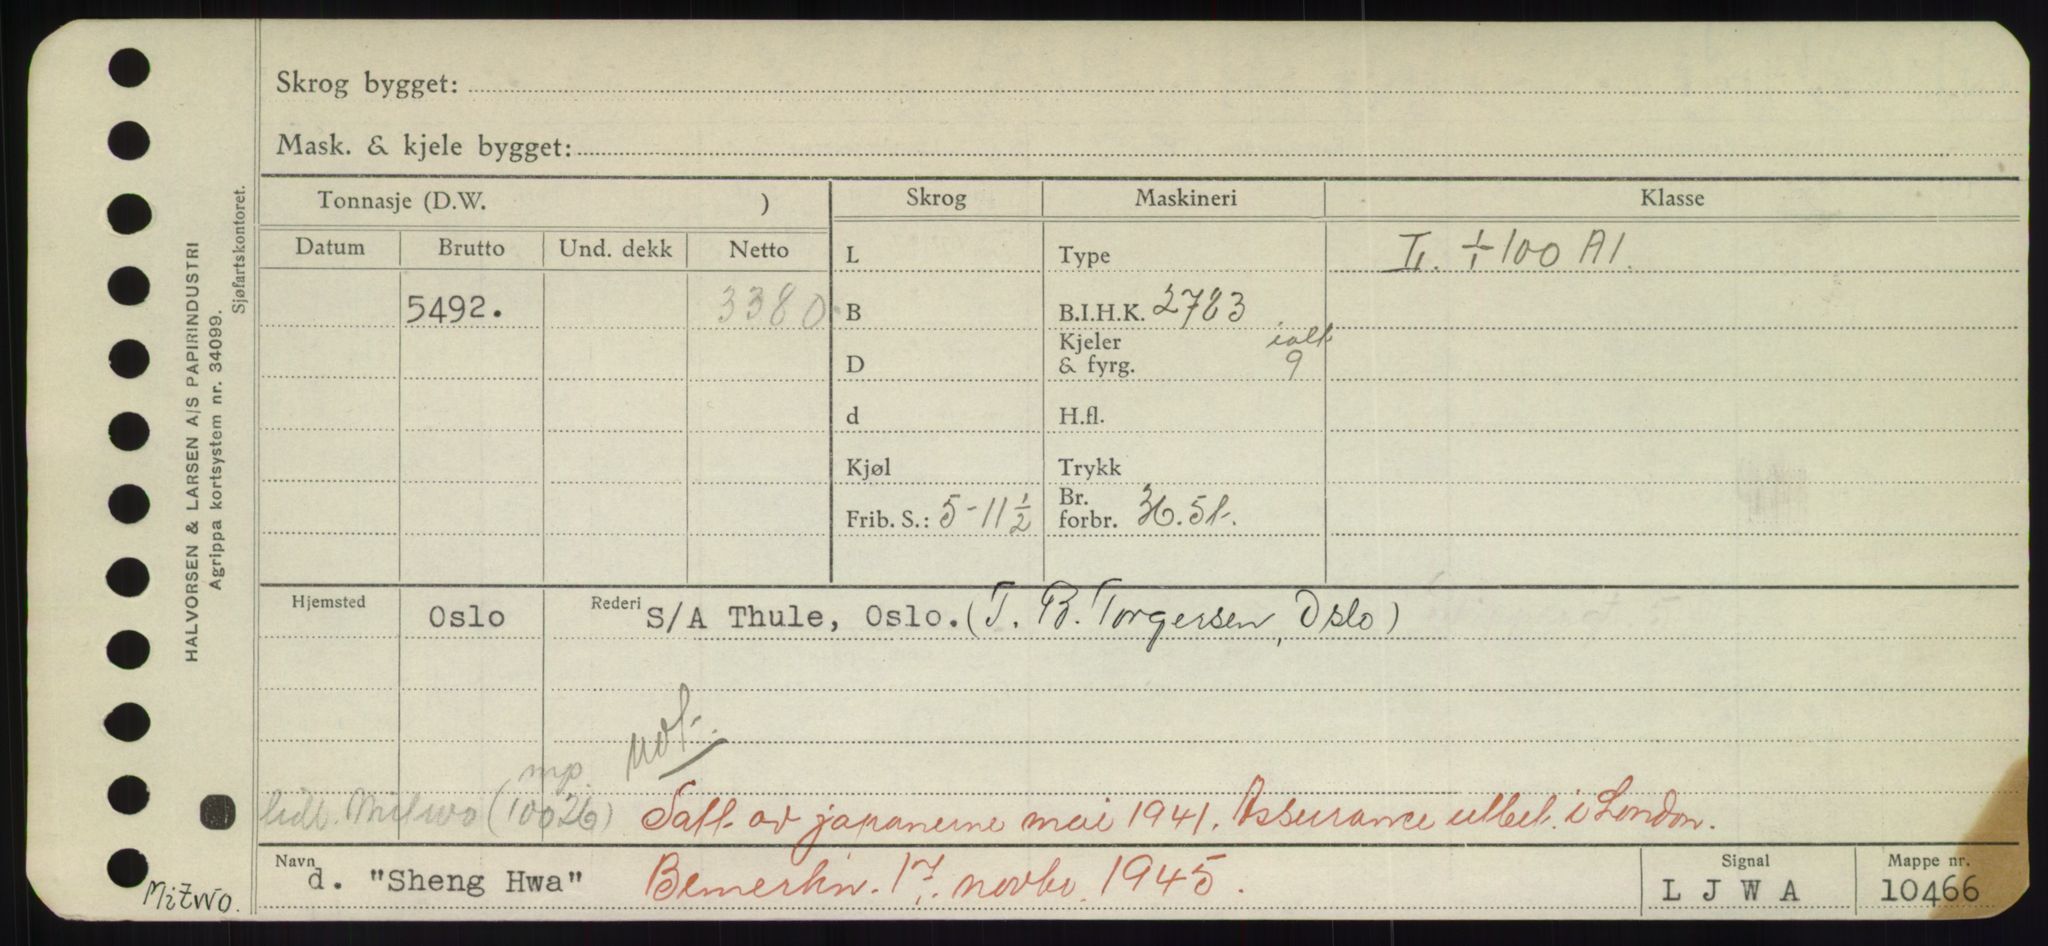 Skrog bygget:
Mask. & kjele bygget:
Tonnasje (D.W. )
Skrog
Maskineri
Klasse
Datum
Brutto
Und. dekk
Netto
L
Type
L. 100 A1.
5492.
3380
B
B.I.H.K. 2783
D
Kjeler & fyrg. ialt 9
d
H.fl.
Kjøl
Trykk
Frib. S.: 5-11½
Br. forbr. 36.5t.
Hjemsted
Oslo
Rederi
S/A Thule, Oslo. (T. B. Torgersen, Oslo)
not.
mp.
tidl. Mitwo (10026)
Tatt av japanerne mai 1941. Assurance utbet. i London.
Navn
d. "Sheng Hwa"
Bemerkn. 17. novbr. 1945.
Signal
L J W A
Mappe nr.
10466
Mitwo.
HALVORSEN & LARSEN A/S PAPIRINDUSTRI
Agrippa kortsystem nr. 34099.
Sjøfartskontoret.